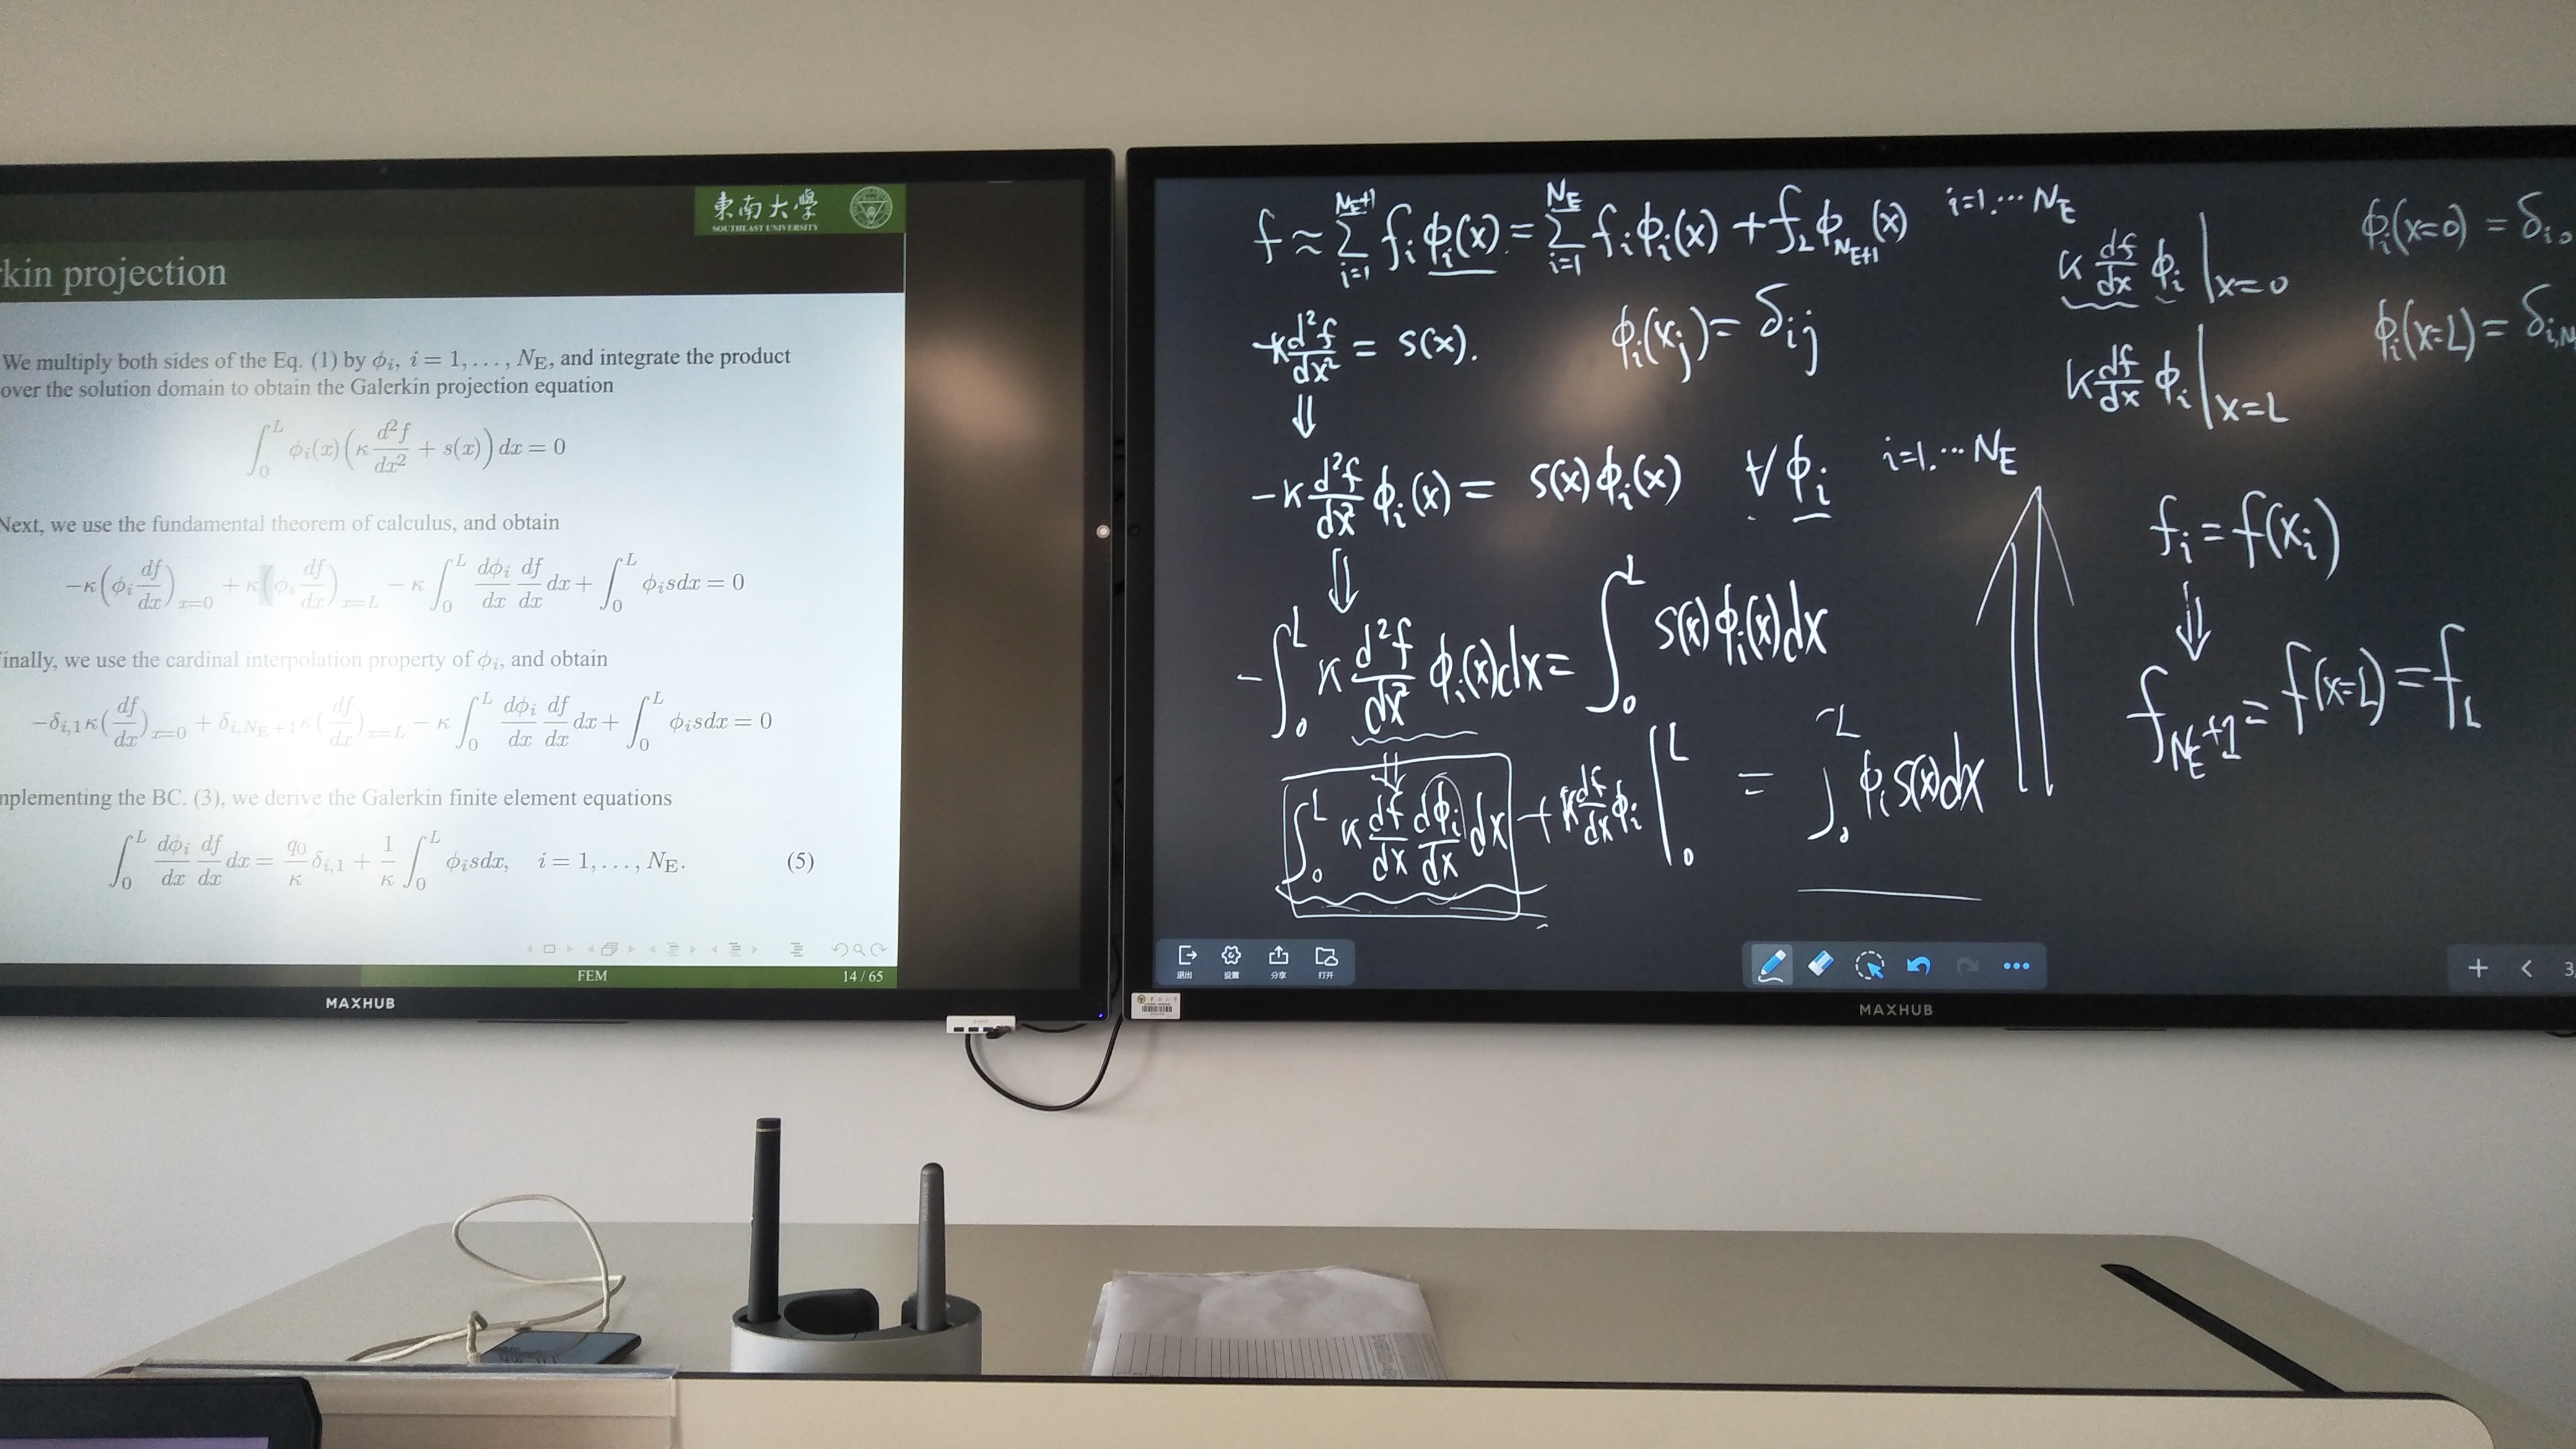 東南大學
SOUTHEAST UNIVERSITY
kin projection
We multiply both sides of the Eq. (1) by ϕᵢ, i = 1, . . . , N_E, and integrate the product
over the solution domain to obtain the Galerkin projection equation
∫₀ᴸ ϕᵢ(x)(κ d²f/dx² + s(x)) dx = 0
Next, we use the fundamental theorem of calculus, and obtain
−κ(ϕᵢ df/dx)_{x=0} + κ(ϕᵢ df/dx)_{x=L} − κ ∫₀ᴸ dϕᵢ/dx df/dx dx + ∫₀ᴸ ϕᵢsdx = 0
inally, we use the cardinal interpolation property of ϕᵢ, and obtain
−δ_{i,1}κ(df/dx)_{x=0} + δ_{i,N_E+1}κ(df/dx)_{x=L} − κ ∫₀ᴸ dϕᵢ/dx df/dx dx + ∫₀ᴸ ϕᵢsdx = 0
mplementing the BC. (3), we derive the Galerkin finite element equations
∫₀ᴸ dϕᵢ/dx df/dx dx = q₀/κ δ_{i,1} + 1/κ ∫₀ᴸ ϕᵢsdx, i = 1, . . . , N_E. (5)
FEM 14 / 65
MAXHUB
f ≈ Σ_{i=1}^{N_E+1} fᵢ ϕᵢ(x) = Σ_{i=1}^{N_E} fᵢ ϕᵢ(x) + f_L ϕ_{N_E+1}(x) i=1.··· N_E
κ df/dx ϕᵢ |x=0 ϕᵢ(x=0) =
−κ d²f/dx² = s(x). ϕᵢ(xⱼ) = δᵢⱼ
κ df/dx ϕᵢ |x=L ϕᵢ(x=L) =
⇓
−κ d²f/dx² ϕᵢ(x) = s(x)ϕᵢ(x) ∀ϕᵢ i=1.··· N_E
fᵢ = f(xᵢ)
⇓
−∫₀ᴸ κ d²f/dx² ϕᵢ(x)dx = ∫₀ᴸ s(x)ϕᵢ(x)dx
⇓
f_{N_E+1} = f(x=L) = f_L
⇓
∫₀ᴸ κ df/dx dϕᵢ/dx dx + κ df/dx ϕᵢ |₀ᴸ = ∫₀ᴸ ϕᵢ s(x)dx
退出 设置 分享 打开
3
MAXHUB
MAXHUB